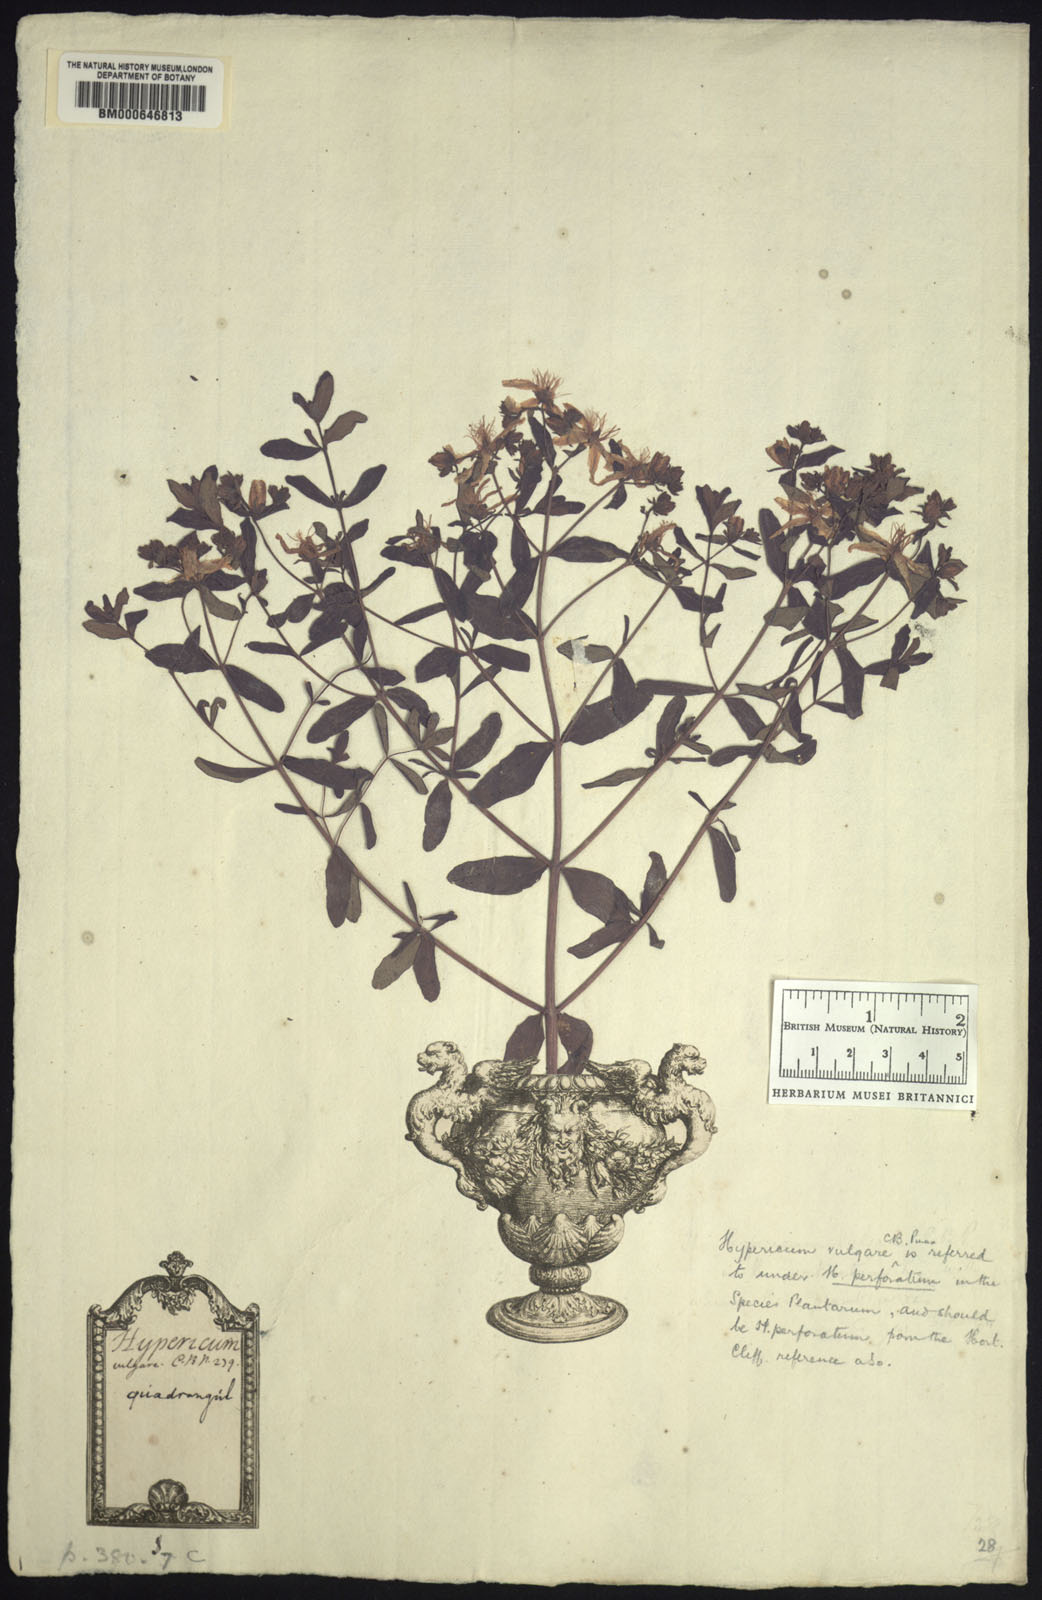 THE NATURAL HISTORY MUSEUM, LONDON
DEPARTMENT OF BOTANY
BM000646813
1 2
BRITISH MUSEUM (NATURAL HISTORY)
1 2 3 4 5
HERBARIUM MUSEI BRITANNICI
C.B. Pinax
Hypericum vulgare ^ is referred
to under H. perforatum in the
Species Plantarum, and should
be H. perforatum from the Hort.
Cliff. reference also.
Hypericum
vulgare. C.B.P. 279.
quadrangul
p. 380. 7 C
28